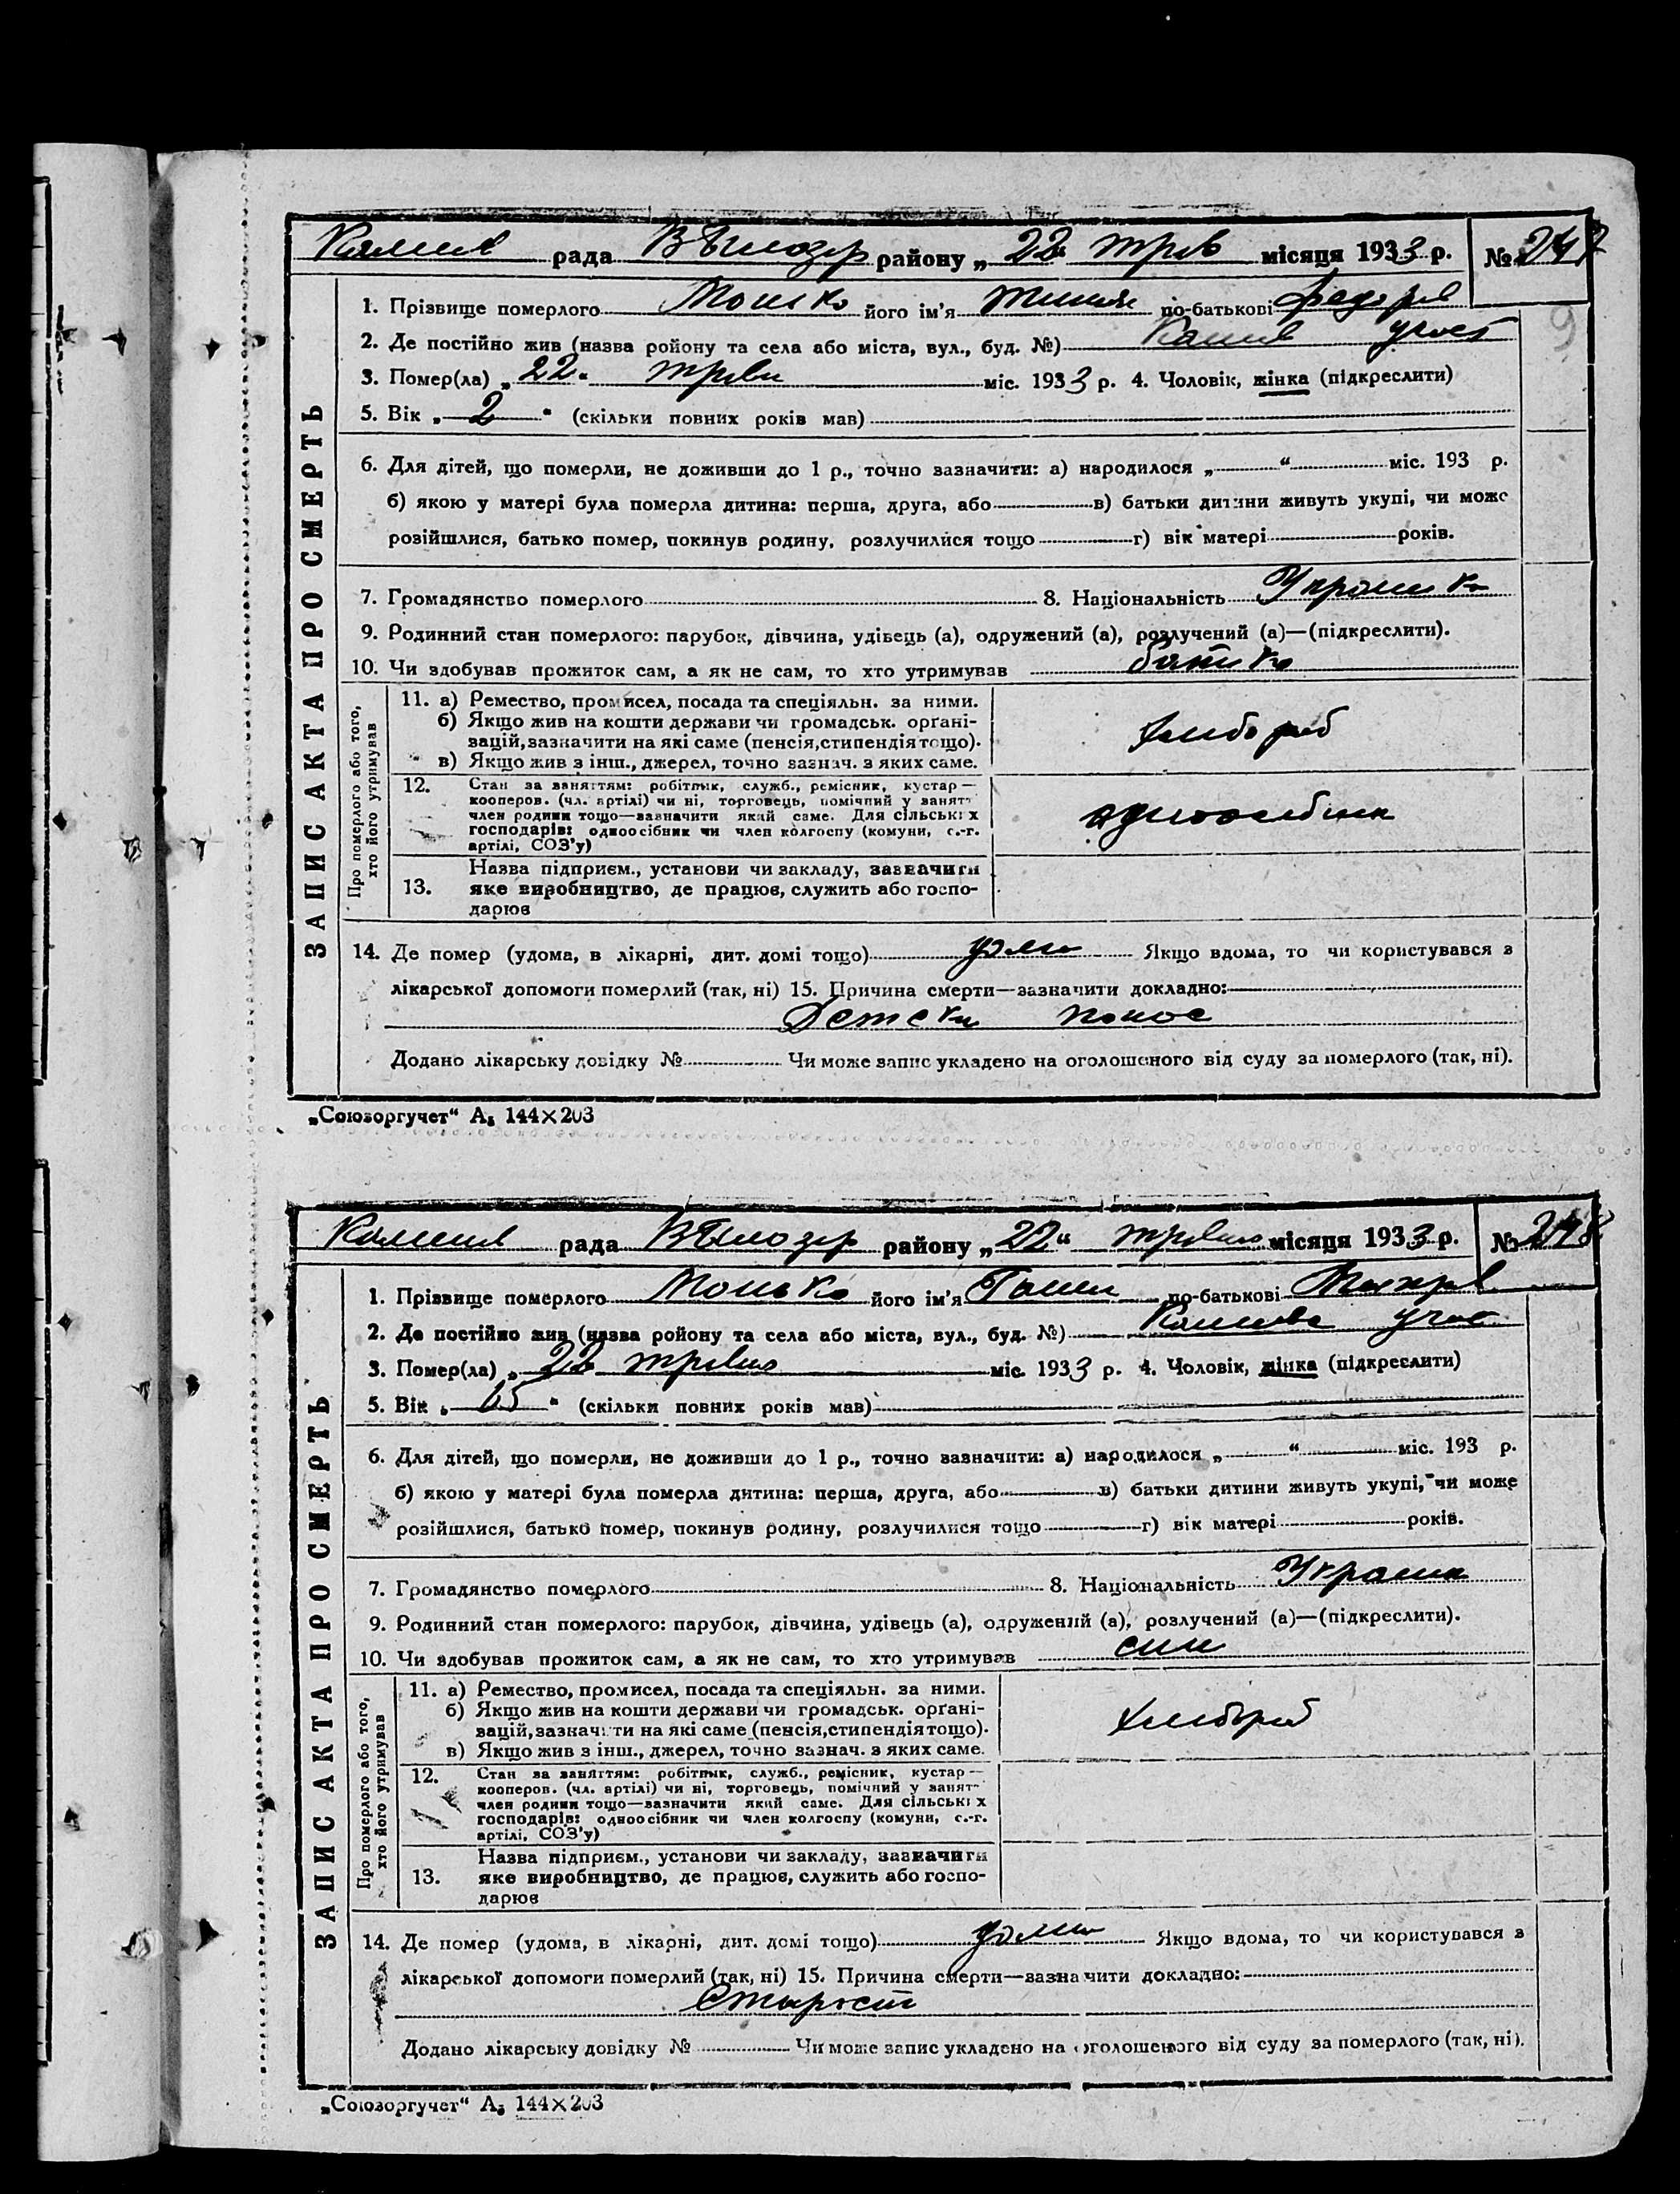 рада В Білозер району „22“ трав місяця 1933 р. № 247
1. Прізвище померлого Монько його ім'я по-батькові Федорів
2. Де постійно жив (назва ройону та села або міста, вул., буд. №)
3. Помер(ла) „22“ травн міс. 1933 р. 4. Чоловік, жінка (підкреслити)
5. Вік „2“ (скільки повних років мав)
9
6. Для дітей, що померли, не доживши до 1 р., точно зазначити: а) народилося „ “ міс. 193 р.
б) якою у матері була померла дитина: перша, друга, або в) батьки дитини живуть укупі, чи може
розійшлися, батько помер, покинув родину, розлучилися тощо г) вік матері років.
7. Громадянство померлого 8. Національність Україн ка
9. Родинний стан померлого: парубок, дівчина, удівець (а), одружений (а), розлучений (а)—(підкреслити).
10. Чи здобував прожиток сам, а як не сам, то хто утримував батько
ЗАПИС АКТА ПРО СМЕРТЬ
Про померлого або того,
хто його утримував
11. а) Ремество, промисел, посада та спеціяльн. за ними.
б) Якщо жив на кошти держави чи громадськ. орґані-
зацій, зазначити на які саме (пенсія, стипендія тощо).
в) Якщо жив з інш., джерел, точно зазнач. з яких саме.
хлибороб
12. Стан за заняттям: робітник, служб., ремісник, кустар—
кооперов. (чл. артілі) чи ні, торговець, помічний у занятт
член родини тощо—зазначити який саме. Для сільських
господарів: одноосібник чи член колгоспу (комуни, с.-г.
артілі, СОЗ'у)
одноосібник
Назва підприєм., установи чи закладу, зазначити
13. яке виробництво, де працює, служить або госпо-
дарює
14. Де помер (удома, в лікарні, дит. домі тощо) удома Якщо вдома, то чи користувався з
лікарської допомоги померлий (так, ні) 15. Причина смерти—зазначити докладно:
Детски понос
Додано лікарську довідку № Чи може запис укладено на оголошеного від суду за померлого (так, ні).
„Союзоргучет“ А₅ 144×203
рада В Білозер району „22“ травня місяця 1933 р. № 248
1. Прізвище померлого Монько його ім'я по-батькові
2. Де постійно жив (назва ройону та села або міста, вул., буд. №)
3. Помер(ла) „22 травня міс. 1933 р. 4. Чоловік, жінка (підкреслити)
5. Вік „65“ (скільки повних років мав)
6. Для дітей, що померли, не доживши до 1 р., точно зазначити: а) народилося „ “ міс. 193 р.
б) якою у матері була померла дитина: перша, друга, або в) батьки дитини живуть укупі, чи може
розійшлися, батько помер, покинув родину, розлучилися тощо г) вік матері років.
7. Громадянство померлого 8. Національність Україн
9. Родинний стан померлого: парубок, дівчина, удівець (а), одружений (а), розлучений (а)—(підкреслити).
10. Чи здобував прожиток сам, а як не сам, то хто утримував син
ЗАПИС АКТА ПРО СМЕРТЬ
Про померлого або того,
хто його утримував
11. а) Ремество, промисел, посада та спеціяльн. за ними.
б) Якщо жив на кошти держави чи громадськ. орґані-
зацій, зазначити на які саме (пенсія, стипендія тощо).
в) Якщо жив з інш., джерел, точно зазнач. з яких саме.
хлибороб
12. Стан за заняттям: робітник, служб., ремісник, кустар—
кооперов. (чл. артілі) чи ні, торговець, помічний у занят-
член родини тощо—зазначити який саме. Для сільських
господарів: одноосібник чи член колгоспу (комуни, с.-г.
артілі, СОЗ'у)
Назва підприєм., установи чи закладу, зазначити
13. яке виробництво, де працює, служить або госпо-
дарює
14. Де помер (удома, в лікарні, дит. домі тощо) удома Якщо вдома, то чи користувався з
лікарської допомоги померлий (так, ні) 15. Причина смерти—зазначити докладно:
Старость
Додано лікарську довідку № Чи може запис укладено на оголошеного від суду за померлого (так, ні).
„Союзоргучет“ А₅ 144×203